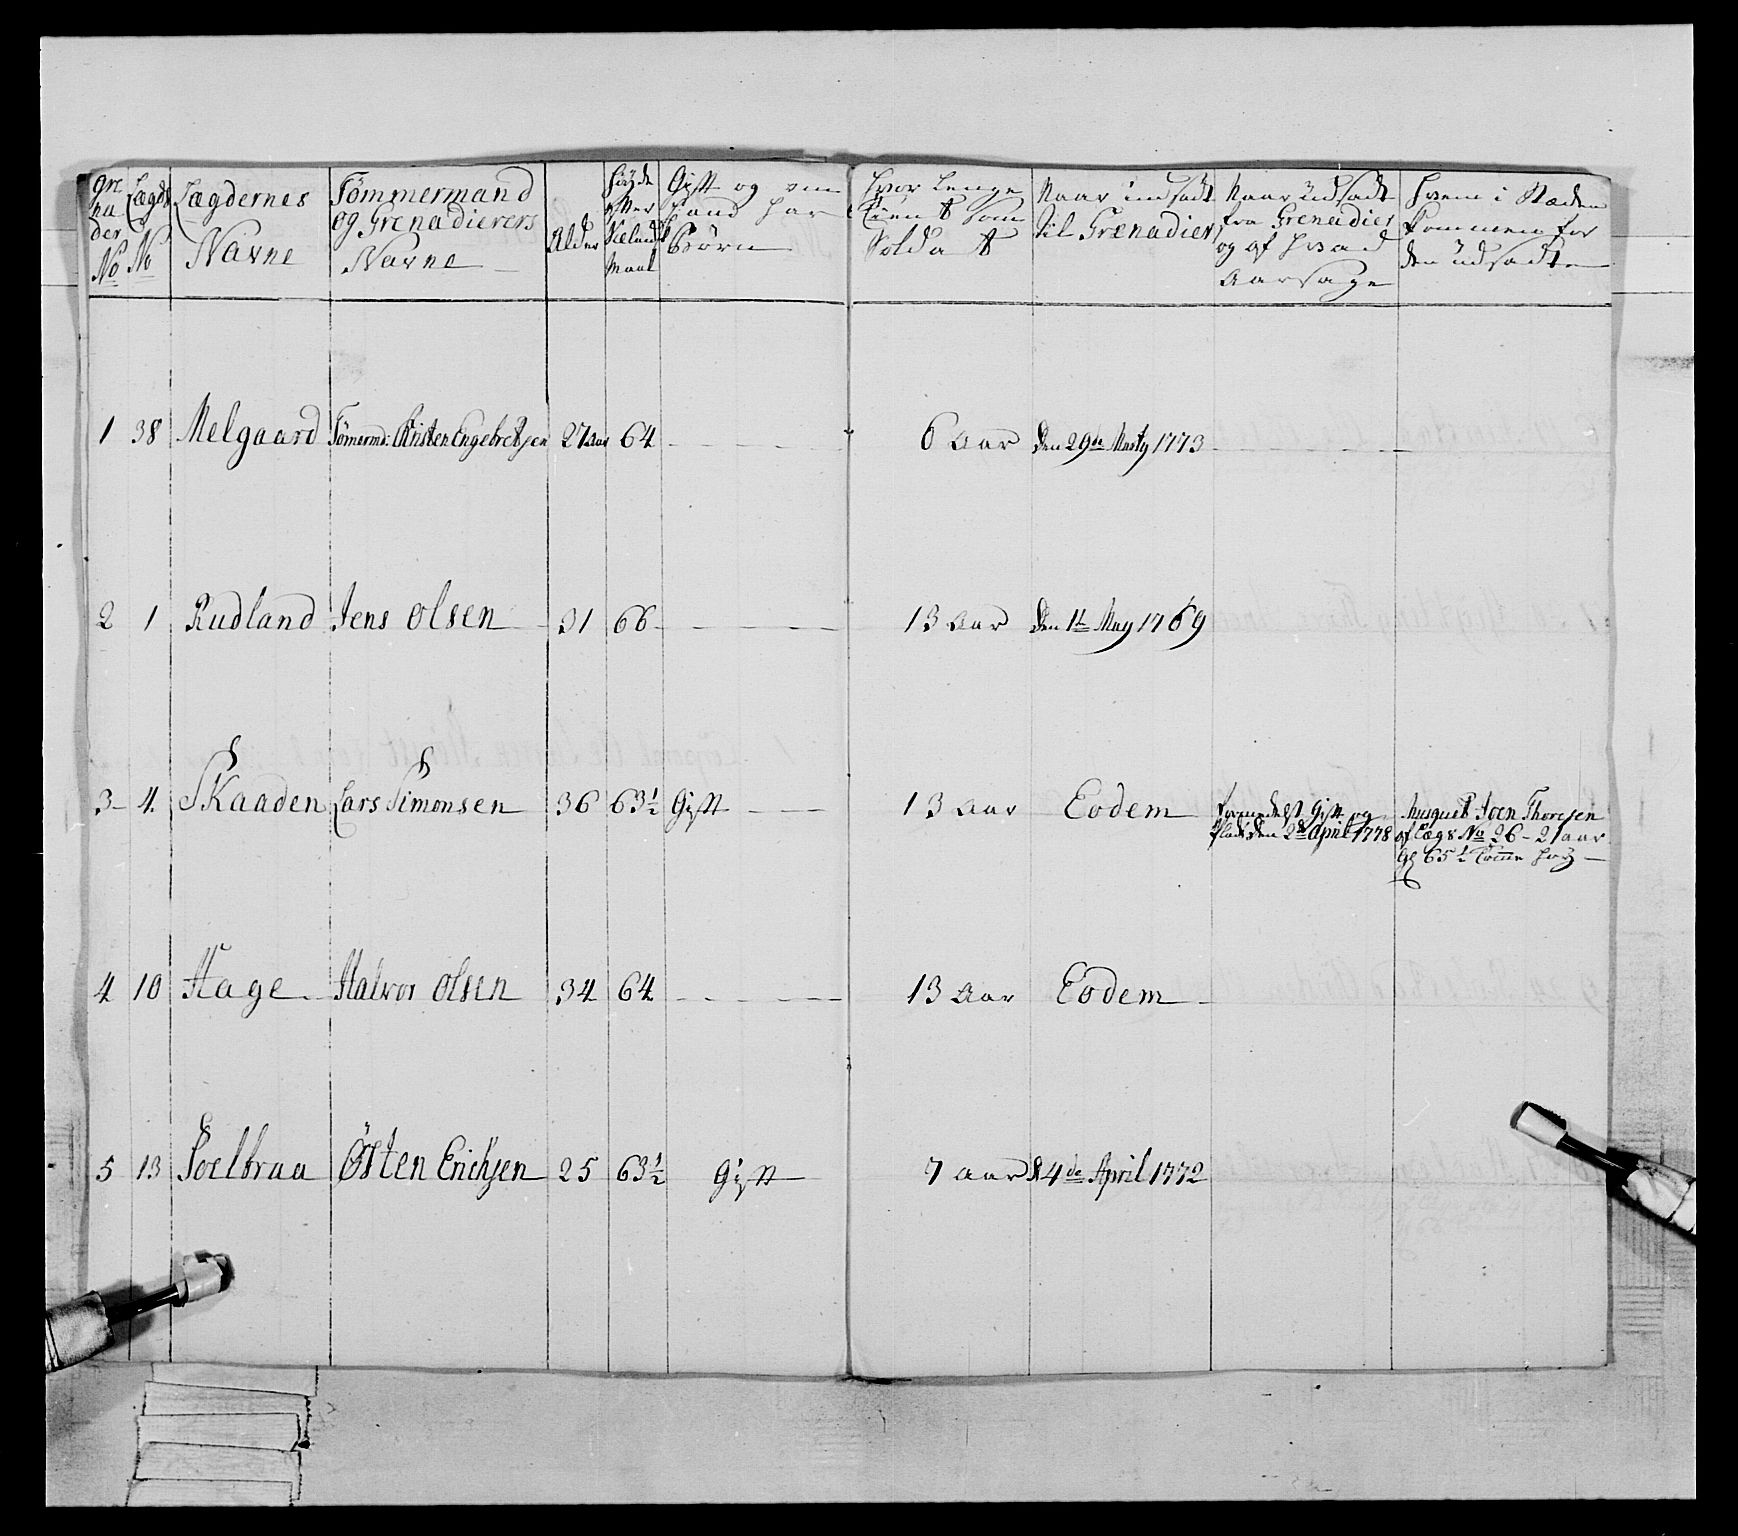 Gre
na
der
No
Lægds
No
Lægdernes
Navne
Tömmermand
og Grenadierers
Navne
Alder
Höyde
efter
Siælands
Maal
Gift og om
hand har
Børn
Hvor Lenge
tient som
Soldat
Naar indsadt
til Grenadier
Naar üdsadt
fra Grenadier
og af hvad
Aarsage
Hvem i Stæden
kommen for
den üdsadte
1 38 Melgaard Tömermd: Christen Engebretsen 27 aar 64 6 Aar den 29de Marty 1773
2 1 Rudland Jens Olsen 31 66 13 Aar den 1te May 1769
3 4 Skaaden Lars Simonsen 36 63½ Gift 13 Aar Eodem
formedelst Gift og
den 2de April 1778
Musquet Joen Thoresen
af Læg No 26 - 21 aar
65½ Tome höy
4 10 Hage Halvor Olsen 34 64 13 Aar Eodem
5 13 Soelbraa Östen Erichsen 25 63½ Gift 7 aar d 4de April 1772